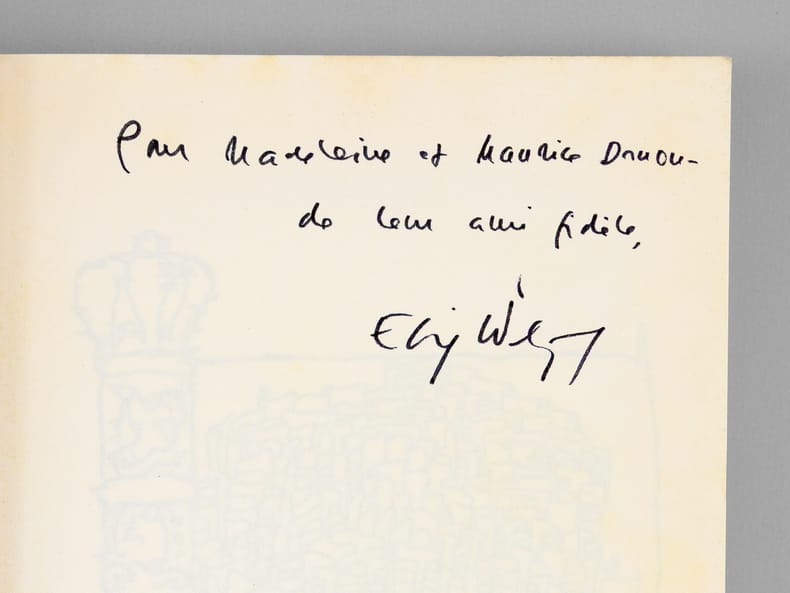 Pour Madeleine et Maurice Druon -
de leur ami fidèle,
Elie Wiesel